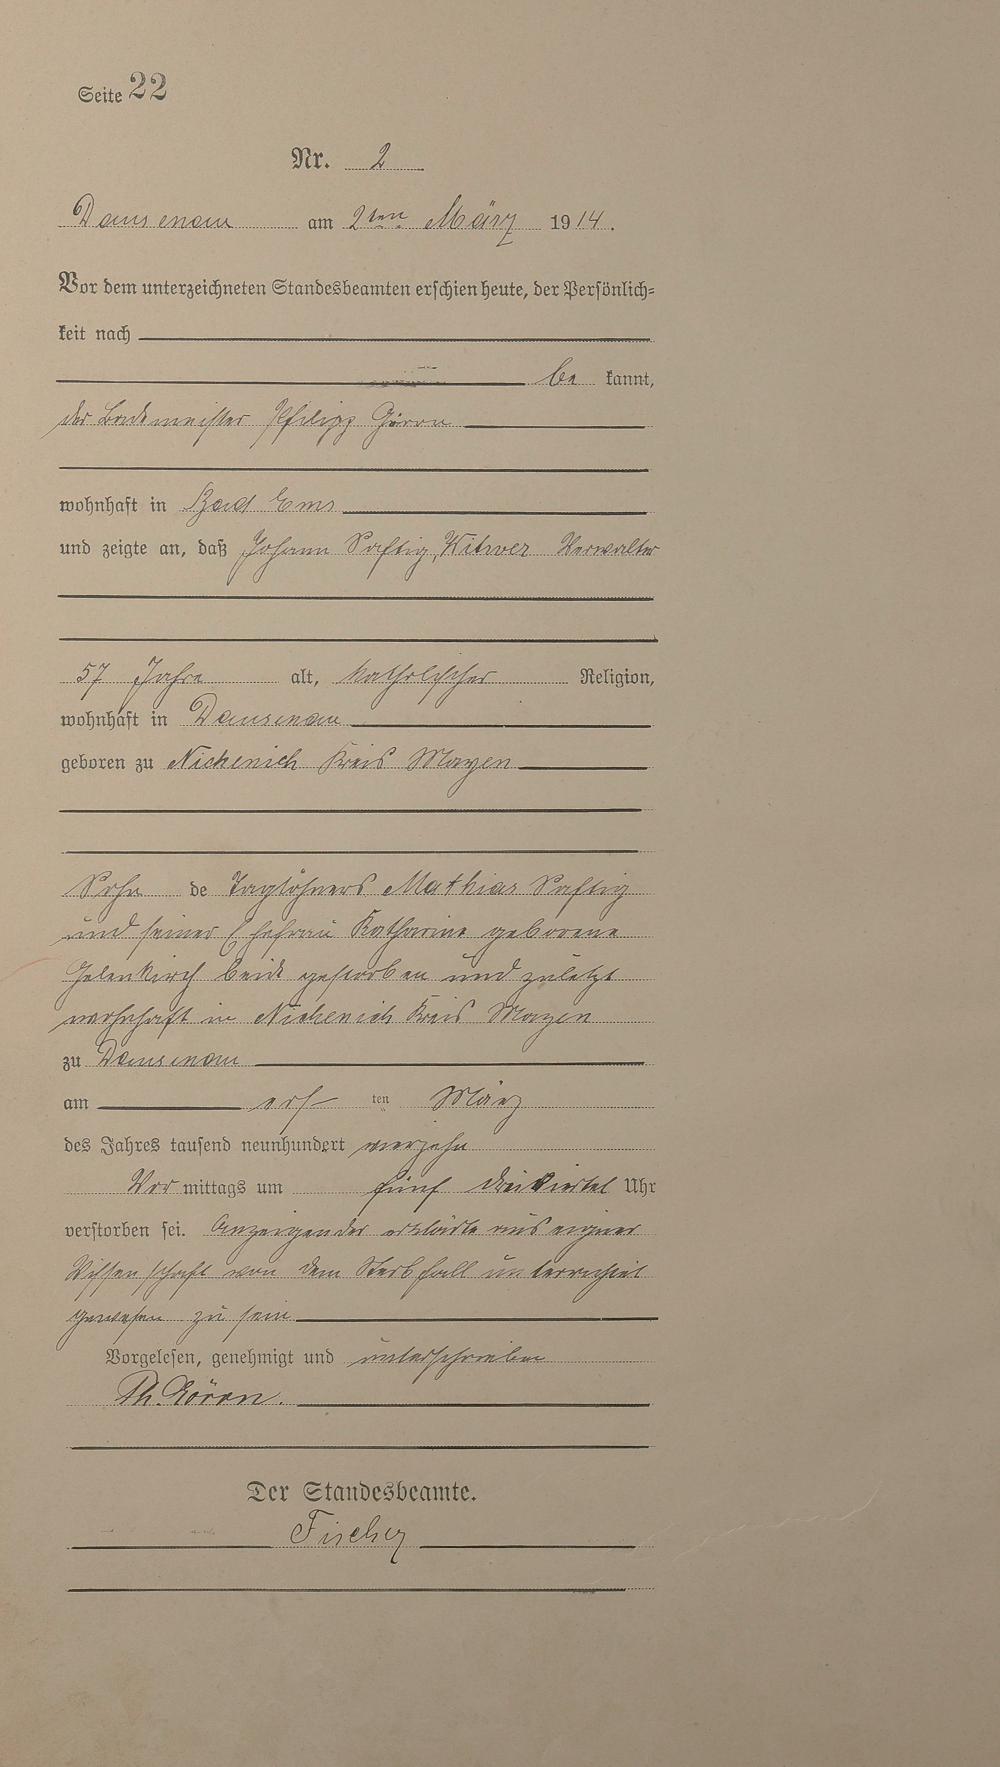 Seite 22
Nr. 2
Dausenau am 2ten März 1914.
Vor dem unterzeichneten Standesbeamten erschien heute, der Persönlich=
keit nach
be kannt,
der Bademeister Philipp
wohnhaft in Bad Ems
und zeigte an, daß Johann Saftig, Witwer Verwalter
57 Jahre alt, katholischer Religion,
wohnhaft in Dausenau
geboren zu Nickenich Kreis Mayen
Sohn de Taglöhners Mathias Saftig
und seiner Ehefrau Katharina geborene
beide gestorben und zuletzt
wohnhaft in Nickenich Kreis Mayen
zu Dausenau
am ers ten März
des Jahres tausend neunhundert vierzehn
Vor mittags um fünf dreiviertel Uhr
verstorben sei. Anzeigender erklärte aus eigner
Wissenschaft von dem Sterbfall unterrichtet
gewesen zu sein
Vorgelesen, genehmigt und unterschrieben
Ph.
Der Standesbeamte.
Fischer